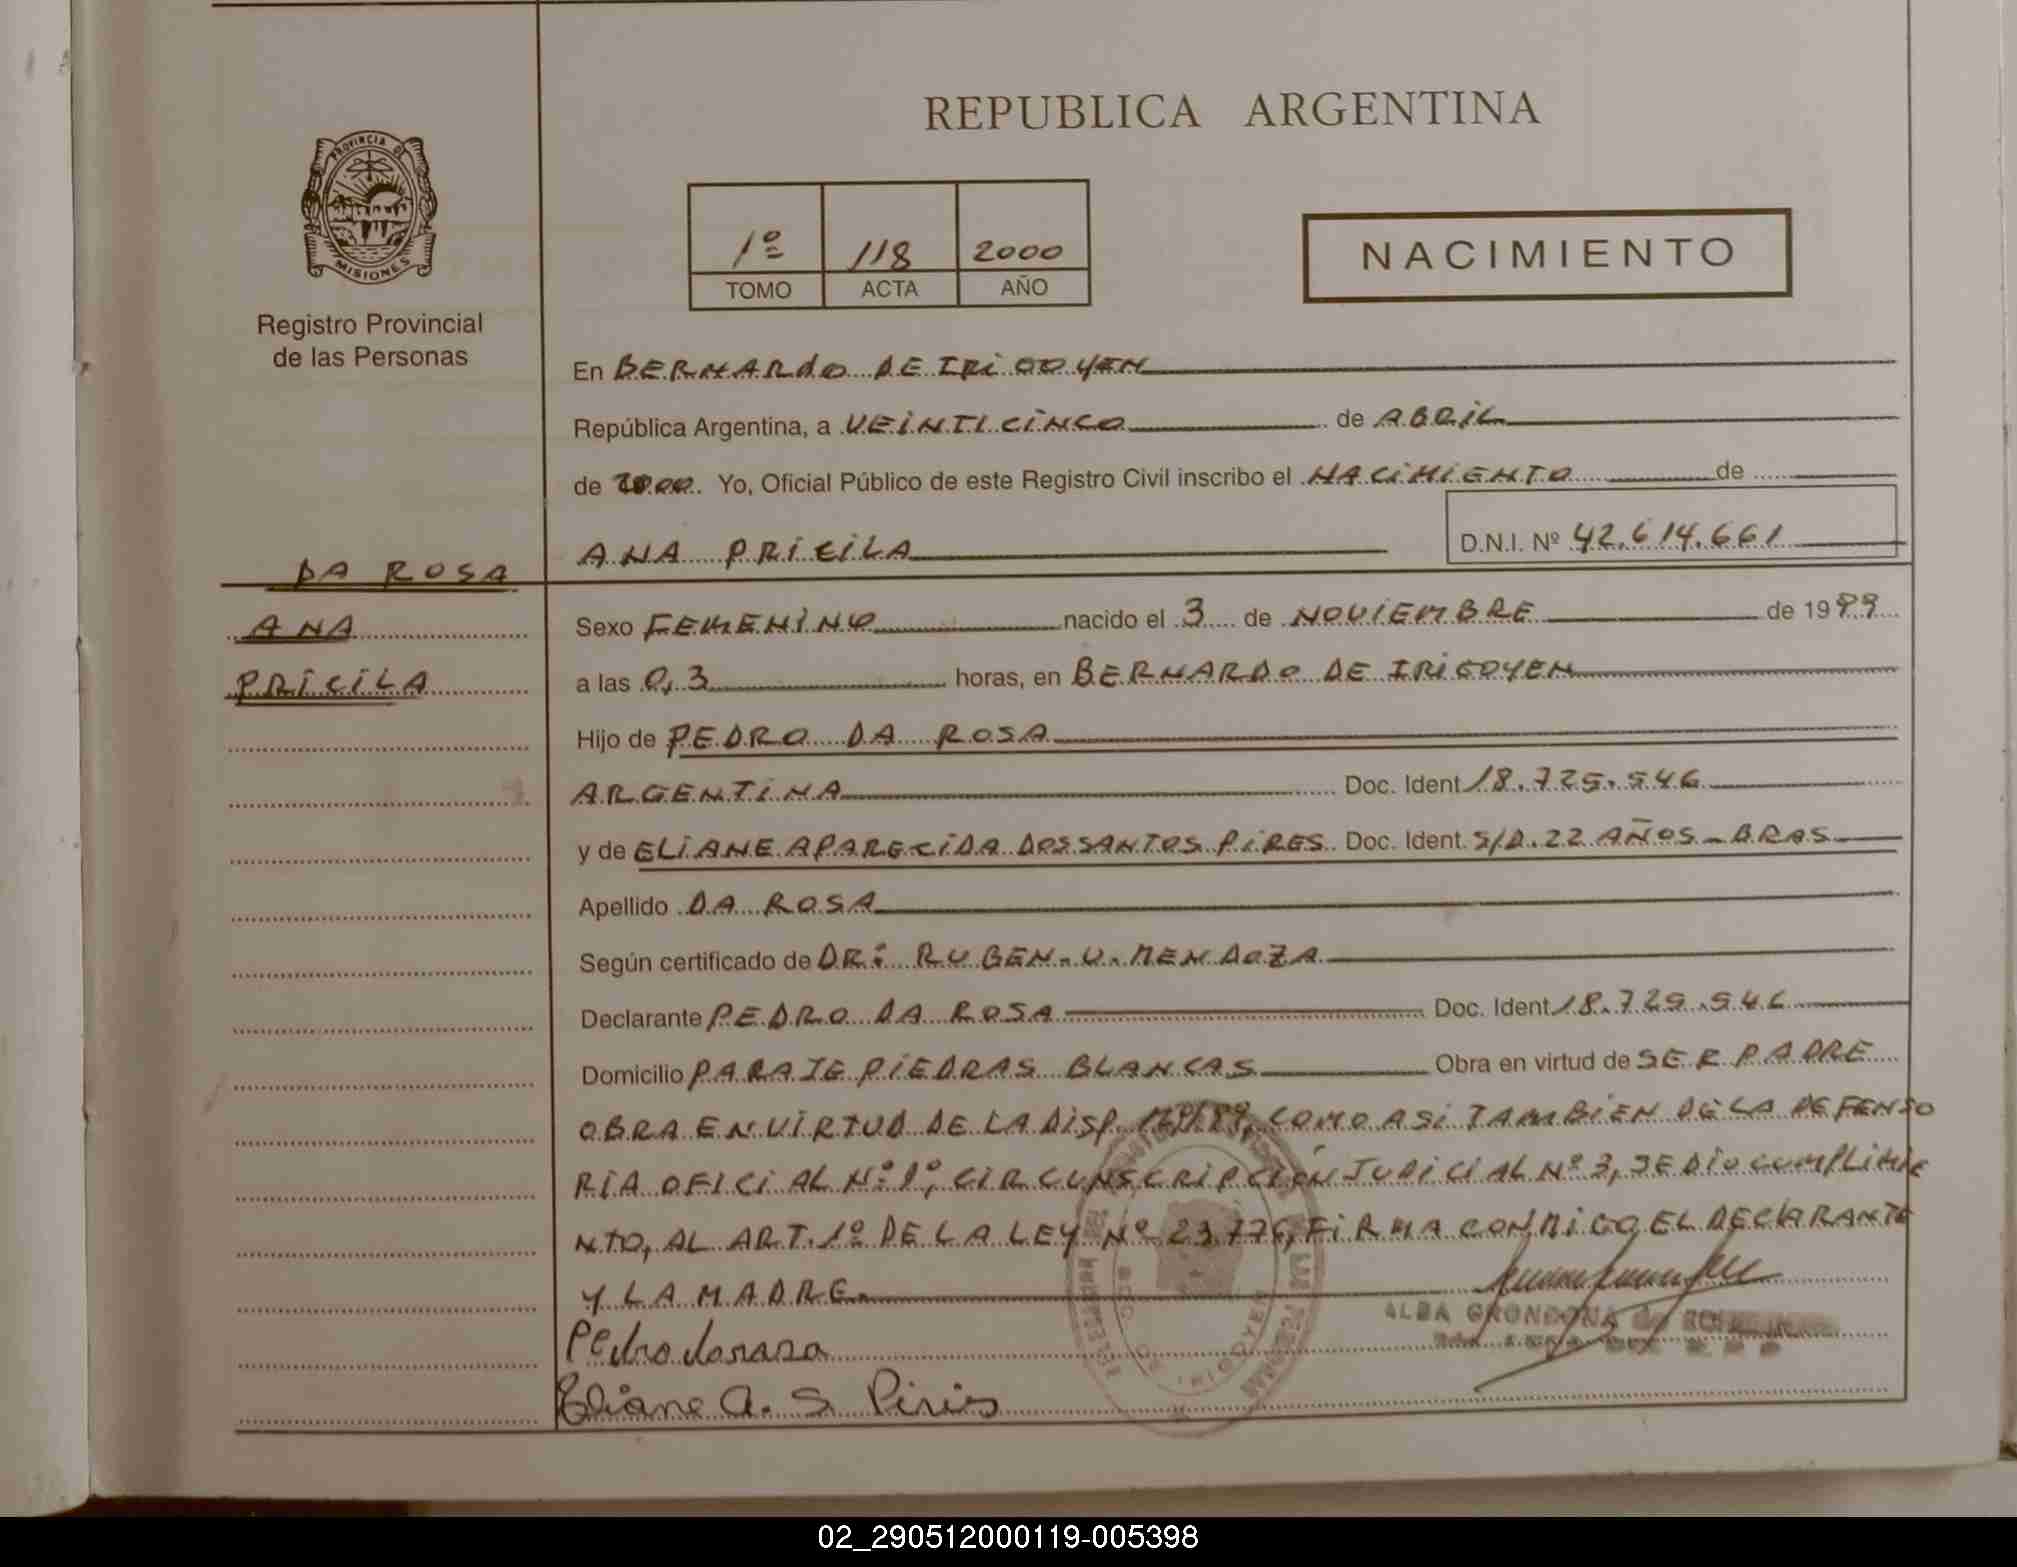 REPUBLICA ARGENTINA
PROVINCIA DE
MISIONES
Registro Provincial
de las Personas
1º 118 2000
TOMO ACTA AÑO
NACIMIENTO
En BERNARDO DE IRIGOYEN
República Argentina, a VEINTICINCO de ABRIL
de 2000. Yo, Oficial Público de este Registro Civil inscribo el NACIMIENTO de
ANA PRICILA D.N.I. Nº 42.614.661
DA ROSA
ANA
PRICILA
Sexo FEMENINO nacido el 3 de NOVIEMBRE de 1999
a las 0,3 horas, en BERNARDO DE IRIGOYEN
Hijo de PEDRO DA ROSA
ARGENTINA Doc. Ident 18.725.546
y de ELIANE APARECIDA DOSSANTOS PIRES Doc. Ident. S/D. 22 AÑOS - BRAS
Apellido DA ROSA
Según certificado de DR: RUBEN. U. MENDOZA
Declarante PEDRO DA ROSA Doc. Ident 18.725.546
Domicilio PARAJE PIEDRAS BLANCAS Obra en virtud de SER PADRE
OBRA EN VIRTUD DE LA DISP. COMO ASI TAMBIEN DE LA DEFENSO
RIA OFICIAL Nº 1º, CIRCUNSCRIPCIÓN JUDICIAL Nº 3, SE DIO CUMPLIMIE
NTO, AL ART. 1º DE LA LEY Nº 23.776, FIRMA CONMIGO, EL DECLARANTE
Y LA MADRE.
Pedro darosa
ALBA GRONDONA de
Eliane A. S. Piris
02_290512000119-005398